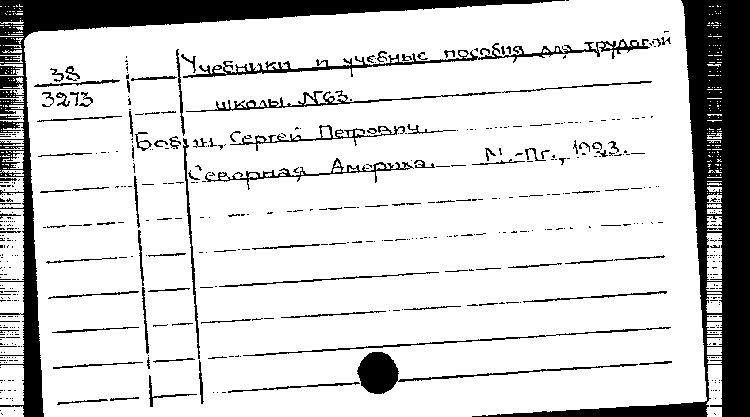 38
3273
Учебники и учебные пособия для трудовой
школы. №63.
Бобин, Сергей Петрович.
Северная Америка. М.-Пг., 1923.